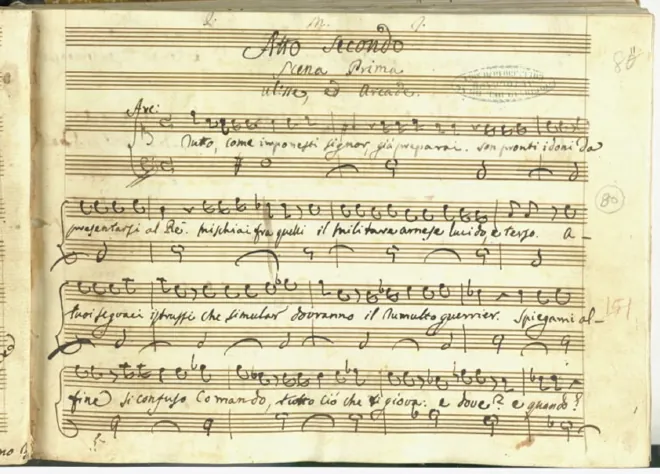 Atto Secondo
Scena Prima
Ulisse, ed Arcade.
Arc:
Tutto, come imponesti signor, già preparai. son pronti i doni da
presentarsi al Re. mischiai fra quelli il militare arnese lucido, e terso. A-
tuoi seguaci istrussi che simular dovranno il tumulto guerrier. Spiegami al-
fine si confuso Comando, tutto ciò che ti giova: e dove? e quando?
80